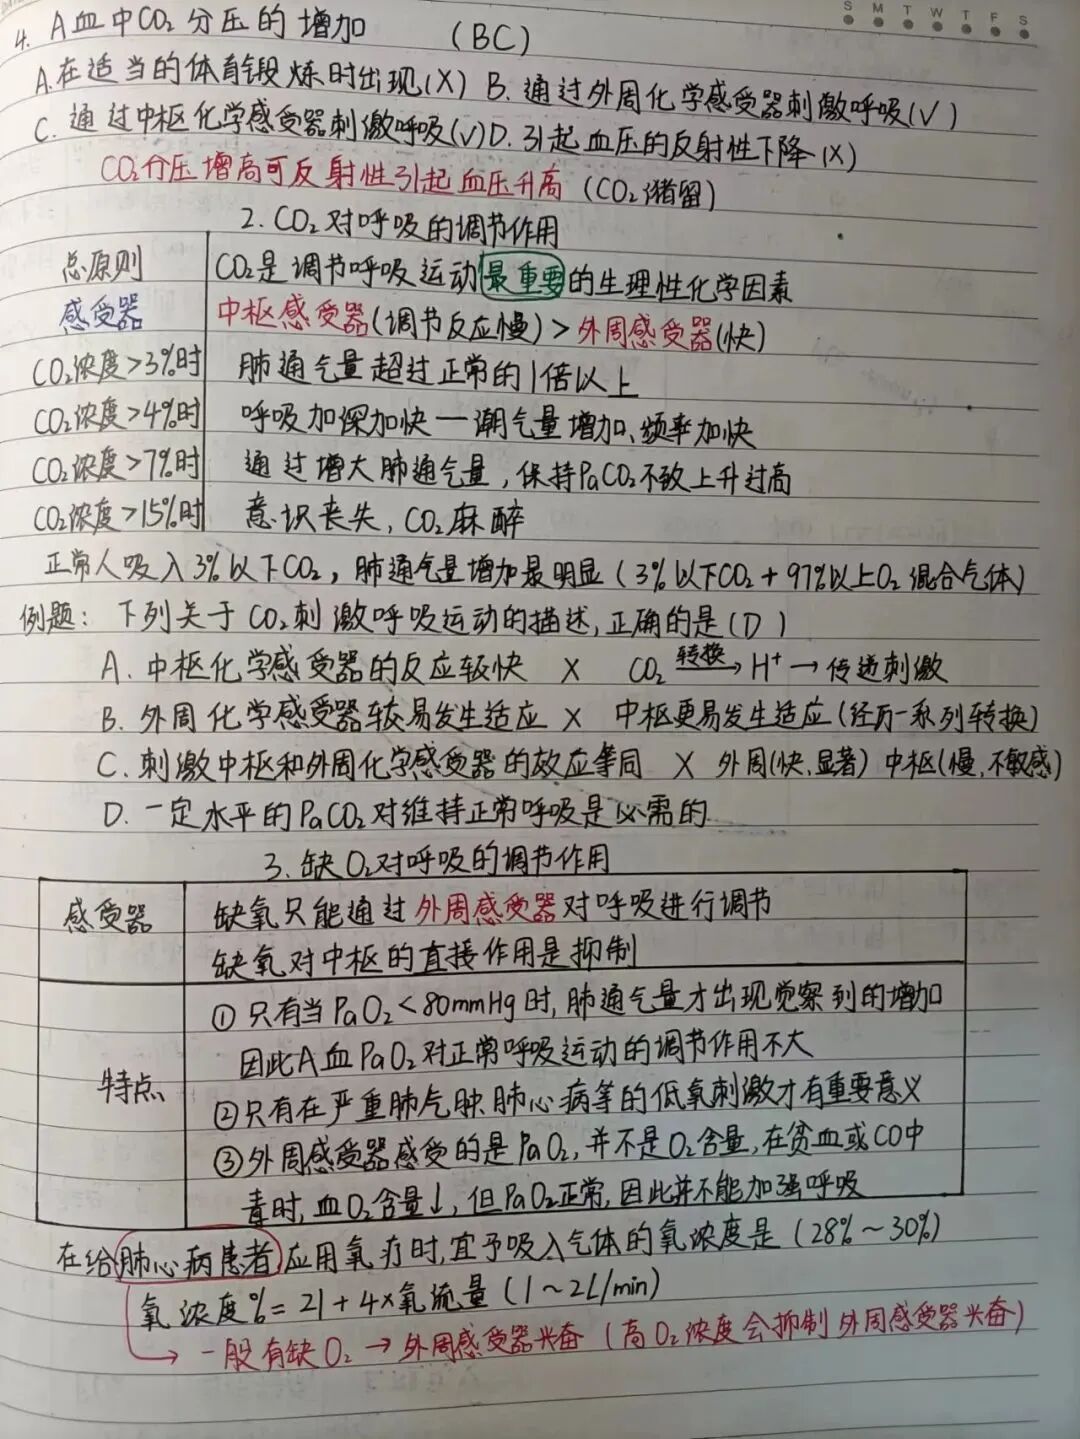 S M T W T F S
4. A血中CO₂分压的增加 (BC)
A.在适当的体育锻炼时出现(X) B.通过外周化学感受器刺激呼吸(√)
C.通过中枢化学感受器刺激呼吸(√)D.引起血压的反射性下降(X)
CO₂分压增高可反射性引起血压升高(CO₂潴留)
2.CO₂对呼吸的调节作用
总原则 CO₂是调节呼吸运动最重要的生理性化学因素
感受器 中枢感受器(调节反应慢)>外周感受器(快)
CO₂浓度>3%时 肺通气量超过正常的1倍以上
CO₂浓度>4%时 呼吸加深加快一潮气量增加、频率加快
CO₂浓度>7%时 通过增大肺通气量,保持PaCO₂不致上升过高
CO₂浓度>15%时 意识丧失,CO₂麻醉
正常人吸入3%以下CO₂,肺通气量增加最明显(3%以下CO₂+97%以上O₂混合气体)
例题:下列关于CO₂刺激呼吸运动的描述,正确的是(D)
A.中枢化学感受器的反应较快 X CO₂ 转换→ H⁺→传递刺激
B.外周化学感受器较易发生适应 X 中枢更易发生适应(经历一系列转换)
C.刺激中枢和外周化学感受器的效应等同 X 外周(快,显著)中枢(慢,不敏感)
D.一定水平的PaCO₂对维持正常呼吸是必需的
3.缺O₂对呼吸的调节作用
感受器 缺氧只能通过外周感受器对呼吸进行调节
缺氧对中枢的直接作用是抑制
特点 ①只有当PaO₂<80mmHg时,肺通气量才出现觉察到的增加
因此A血PaO₂对正常呼吸运动的调节作用不大
②只有在严重肺气肿、肺心病等的低氧刺激才有重要意义
③外周感受器感受的是PaO₂,并不是O₂含量,在贫血或CO中
毒时,血O₂含量↓,但PaO₂正常,因此并不能加强呼吸
在给肺心病患者应用氧疗时,宜予吸入气体的氧浓度是(28%~30%)
氧浓度%=21+4×氧流量(1~2L/min)
→一般有缺O₂→外周感受器兴奋(高O₂浓度会抑制外周感受器兴奋)